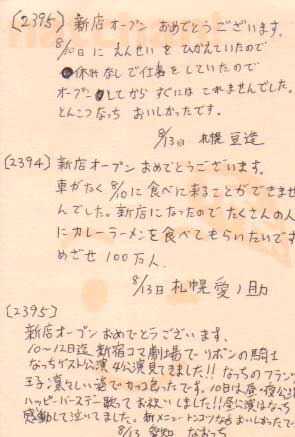 〔2395〕 新店オープン おめでとうございます。
8/10日に えんせいを ひかえていたので
休みなしで仕事をしていたので
オープンしてから すぐには これませんでした。
とんこつなっち おいしかったです。
8/13日 札幌 豆造
〔2394〕新店オープン おめでとうございます。
車がなく 8/10に食べに来ることができませ
んでした。新店になったので たくさんの人
にカレーラーメンを食べてもらいたいです
めざせ 100万人.
8/13日 札幌 愛ノ助
〔2395〕
新店オープンおめでとうございます、
10〜12日迄 新宿コマ劇場でリボンの騎士
なっちゲスト公演 4公演見てきました!! なっちのフランツ
王子凛々しい姿でカッコ良かったです。10日は昼・夜公演
ハッピーバースデー歌ってお祝いしました!! 昼公演はなっち
感動して泣いてました。新メニュートンコツなちおいしかったで
8/13 愛知 なおっち